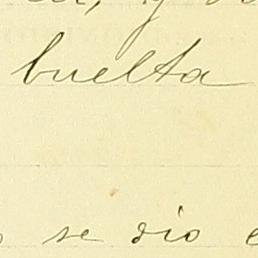 buelta
se dio